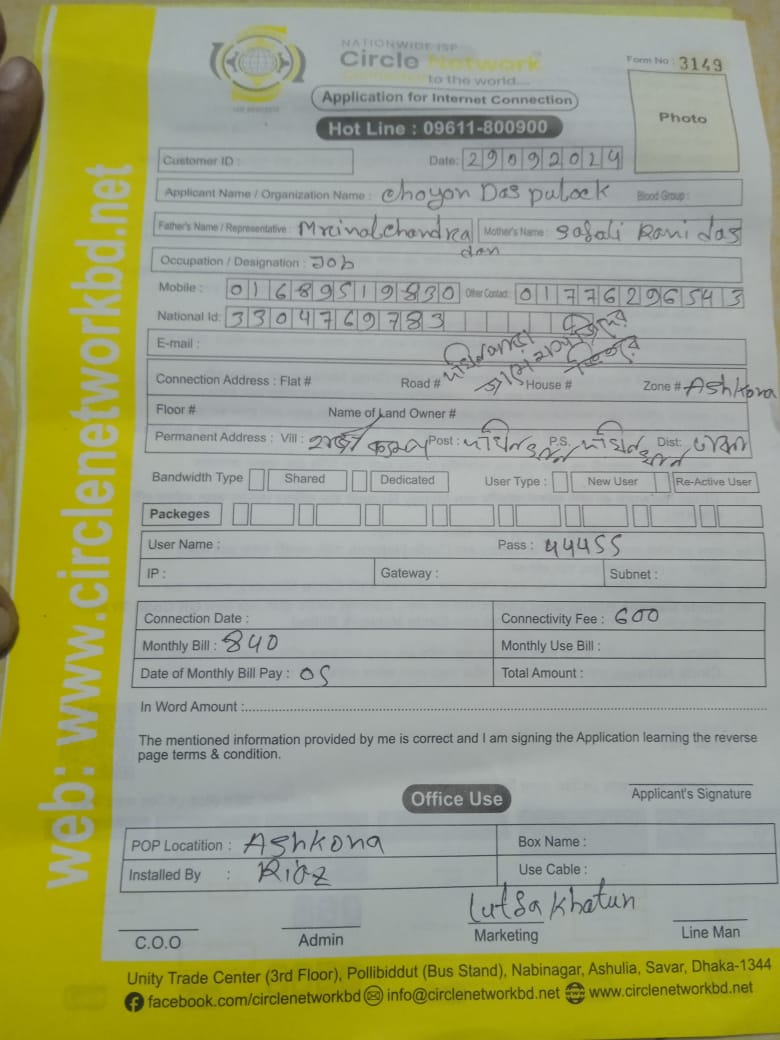 NATIONWIDE ISP
Circle Network
Connected to the world....
Form No : 3149
Application for Internet Connection
Photo
Hot Line : 09611-800900
Customer ID :
Date: 29092024
Applicant Name / Organization Name : Choyon Das pulock Blood Group :
Father's Name / Representative : Mrinal chandra das Mother's Name : Safali Rani das
Occupation / Designation : Job
Mobile : 01689519830 Other Contact: 01776296543
National Id: 3304769783
E-mail :
Connection Address : Flat # Road # House # Zone # Ashkona
Floor # Name of Land Owner #
Permanent Address : Vill : Post : P.S. Dist:
Bandwidth Type Shared Dedicated User Type : New User Re-Active User
Packeges
User Name : Pass : 44455
IP : Gateway : Subnet :
Connection Date : Connectivity Fee : 600
Monthly Bill : 840 Monthly Use Bill :
Date of Monthly Bill Pay : 05 Total Amount :
In Word Amount :
The mentioned information provided by me is correct and I am signing the Application learning the reverse
page terms & condition.
Office Use
Applicant's Signature
POP Locatition : Ashkona Box Name :
Installed By : Riaz Use Cable :
Lutfa Khatun
C.O.O Admin Marketing Line Man
Unity Trade Center (3rd Floor), Pollibiddut (Bus Stand), Nabinagar, Ashulia, Savar, Dhaka-1344
facebook.com/circlenetworkbd info@circlenetworkbd.net www.circlenetworkbd.net
web: www.circlenetworkbd.net